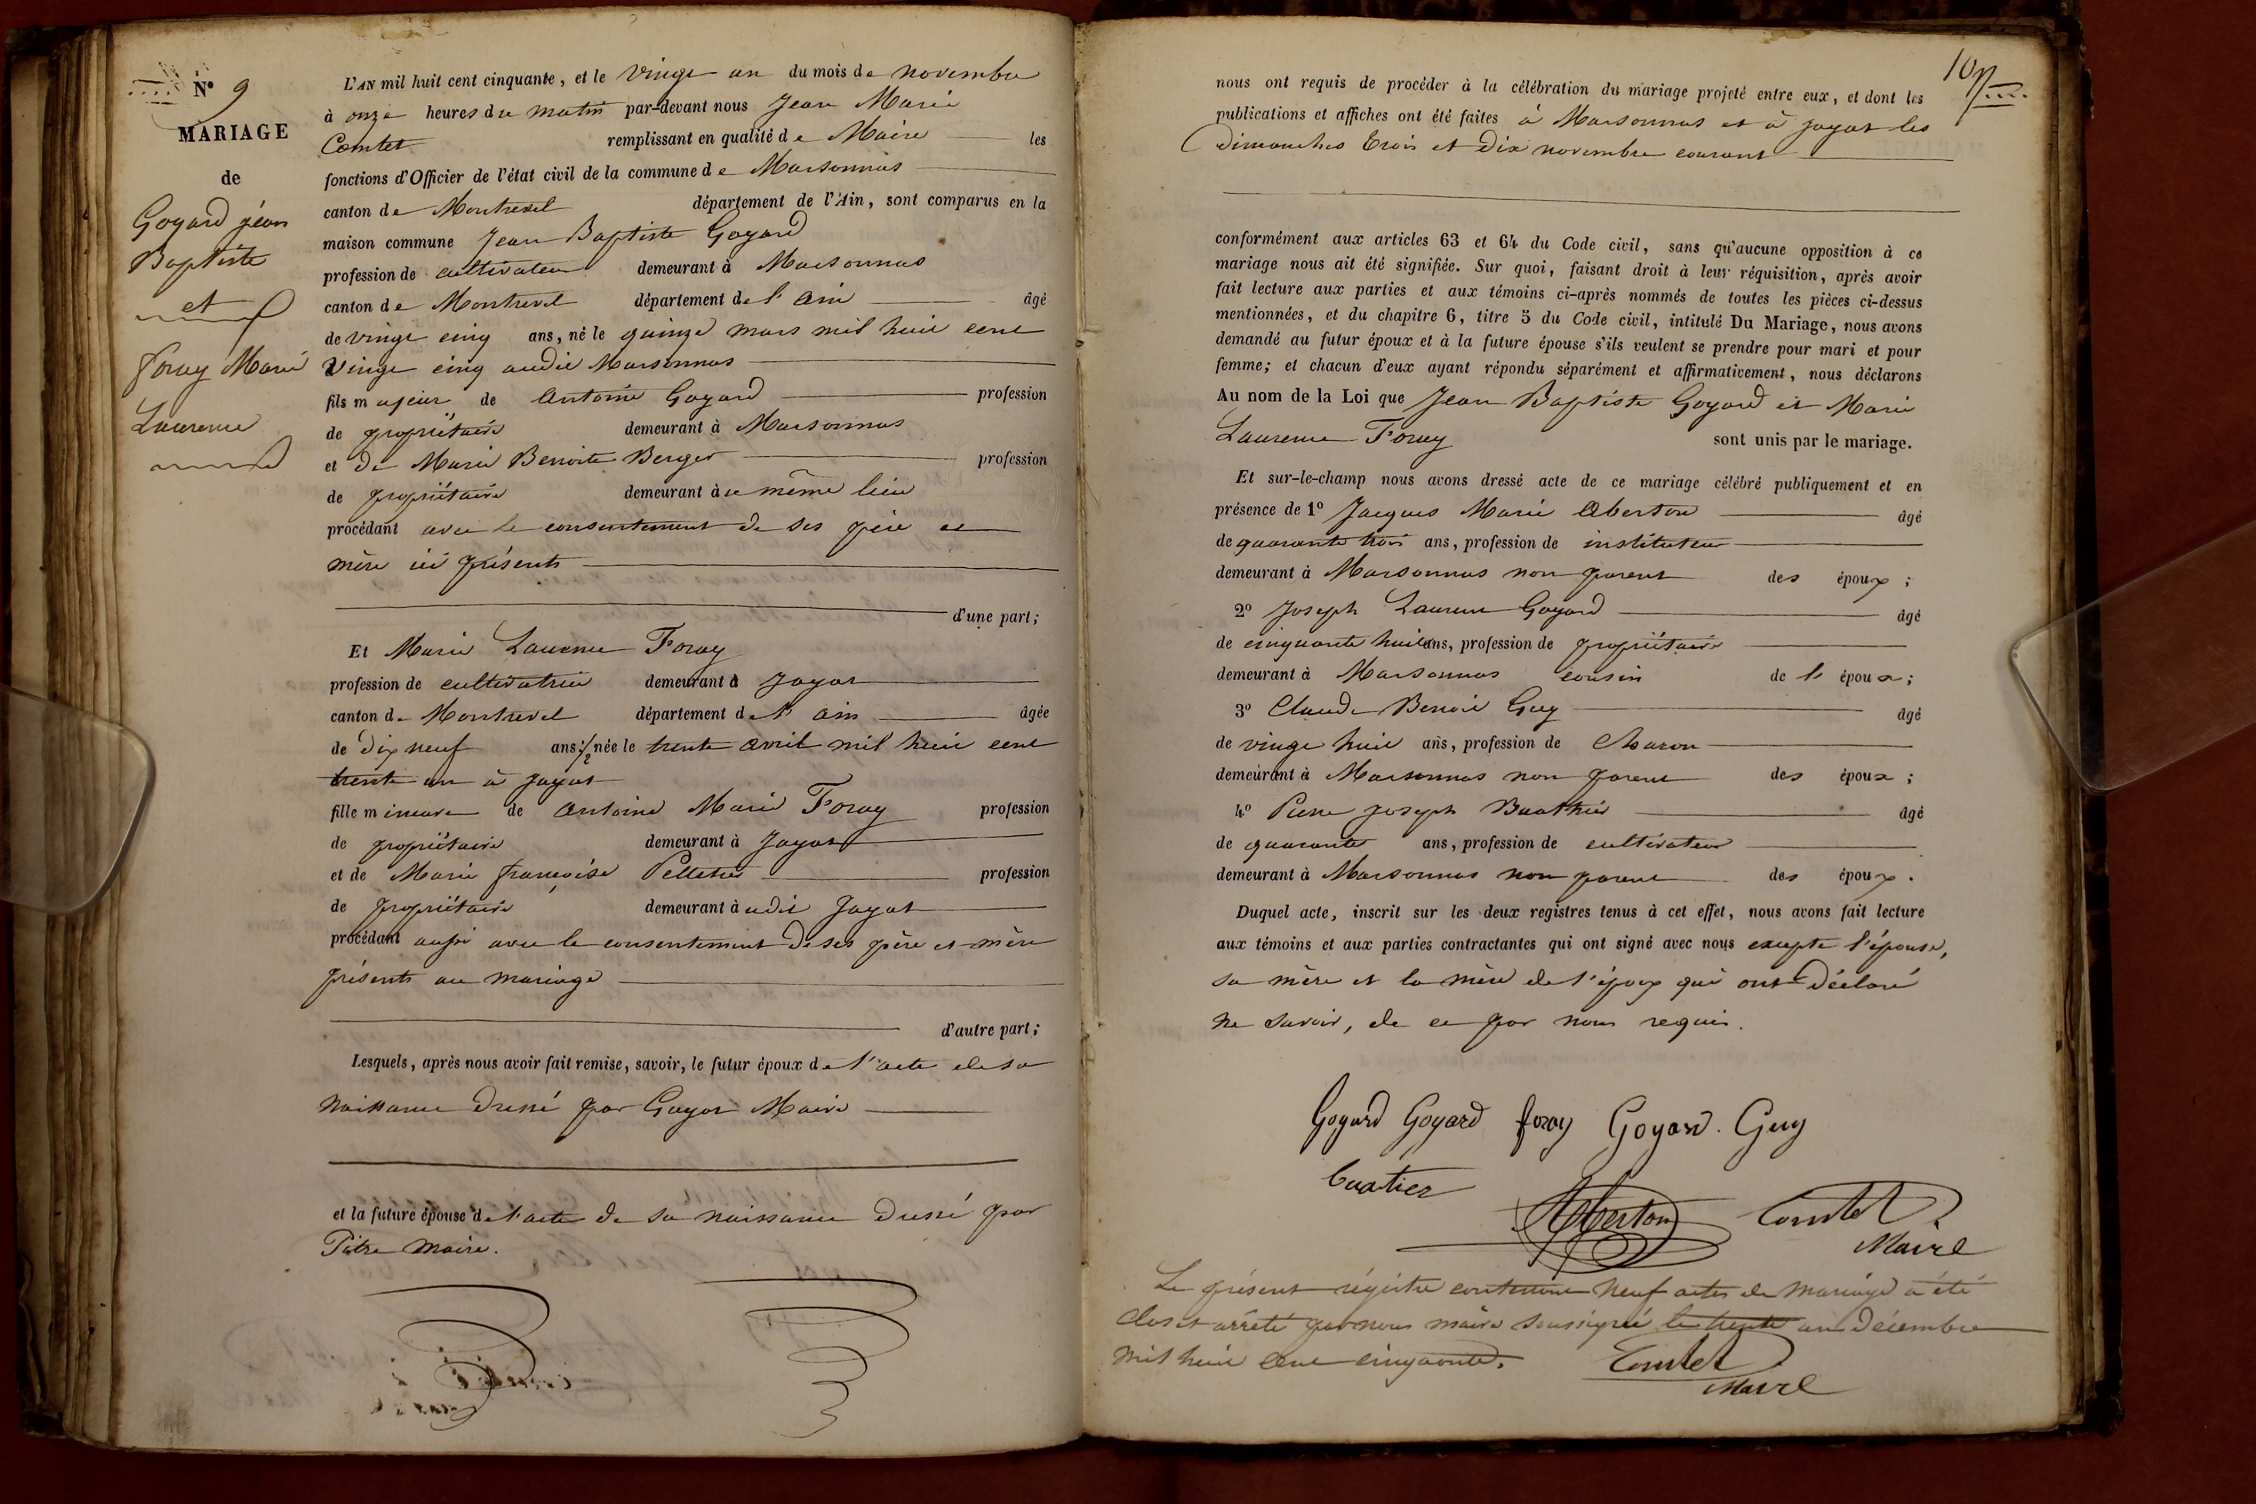 N° 9
MARIAGE
de
Goyard jéan
Baptiste
et
foray Marie
Laurence
L'AN mil huit cent cinquante, et le vingt un du mois de novembre
à onze heures du matin par-devant nous Jean Marie
Comtet remplissant en qualité de Maire les
fonctions d'Officier de l'état civil de la commune de Marsonnas
canton de Montrevel département de l'Ain, sont comparus en la
maison commune Jean Baptiste Goyard
profession de cultivateur demeurant à Marsonnas
canton de Montrevel département de l'ain âgé
de vingt cinq ans, né le quinze mars mil huit cent
vingt cinq audit Marsonnas
fils majeur de Antoine Goyard profession
de propriétaire demeurant à Marsonnas
et de Marie Benoite Berger profession
de propriétaire demeurant à ce même lieu
procédant avec le consentement de ses père et
mère ici présents
d'une part;
Et Marie Laurence Foray
profession de cultivatrice demeurant à Jayat
canton de Montrevel département de l'ain âgée
de dix neuf ans 1/2 née le trente avril mil huit cent
trente un à Jayat
fille mineure de Antoine Marie Foray profession
de propriétaire demeurant à Jayat
et de Marie françoise Pelletier profession
de propriétaire demeurant à udit Jayat
procédant aussi avec le consentement de ses père et mère
présents au mariage
d'autre part;
Lesquels, après nous avoir fait remise, savoir, le futur époux de l'acte de sa
naissance dressé par Guyot Maire
et la future épouse de l'acte de sa naissance dressé par
Pitre maire.
10
nous ont requis de procéder à la célébration du mariage projeté entre eux, et dont les
publications et affiches ont été faites à Marsonnas et à Jayat les
dimanches trois et dix novembre courant
conformément aux articles 63 et 64 du Code civil, sans qu'aucune opposition à ce
mariage nous ait été signifiée. Sur quoi, faisant droit à leur réquisition, après avoir
fait lecture aux parties et aux témoins ci-après nommés de toutes les pièces ci-dessus
mentionnées, et du chapitre 6, titre 5 du Code civil, intitulé Du Mariage, nous avons
demandé au futur époux et à la future épouse s'ils veulent se prendre pour mari et pour
femme; et chacun d'eux ayant répondu séparément et affirmativement, nous déclarons
Au nom de la Loi que Jean Baptiste Goyard et Marie
Laurence Foray sont unis par le mariage.
Et sur-le-champ nous avons dressé acte de ce mariage célébré publiquement et en
présence de 1° Jacques Marie Aberton âgé
de quarante trois ans, profession de instituteur
demeurant à Marsonnas non parent des époux;
2° Joseph Laurent Goyard âgé
de cinquante huit ans, profession de propriétaire
demeurant à Marsonnas cousin de l'époux;
3° Claude Benoit Guy âgé
de vingt huit ans, profession de charon
demeurant à Marsonnas non parent des époux;
4° Pierre Joseph Buathier âgé
de quarante ans, profession de cultivateur
demeurant à Marsonnas non parent des époux.
Duquel acte, inscrit sur les deux registres tenus à cet effet, nous avons fait lecture
aux témoins et aux parties contractantes qui ont signé avec nous excepté l'épouse,
sa mère et la mère de l'époux qui ont déclaré
ne savoir, de ce par nous requis.
Goyard Goyard foray Goyard. Guy
buatier
Aberton Comtet
Maire
Le présent régistre contenant neuf actes de mariage a été
clos et arrêté par nous maire soussigné le trente un décembre
mil huit cent cinquante. Comtet
Maire